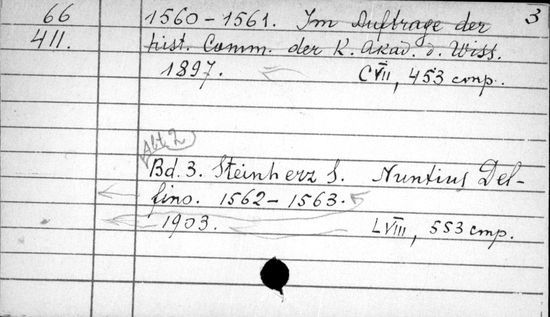 3
66 1560-1561. Im Auftrage der
411. hist. Comm. der K. Akad. d. Wiss.
1897. CVII, 453 стр.
Abt. 2
Bd. 3. Steinherz S. Nuntius Del-
fino. 1562-1563.
1903. LVIII, 553 стр.